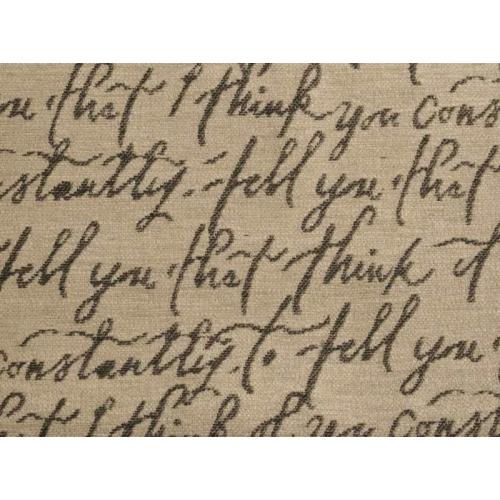 that I think you
stantly. tell you that
tell you that think
constantly. tell you
I think of you